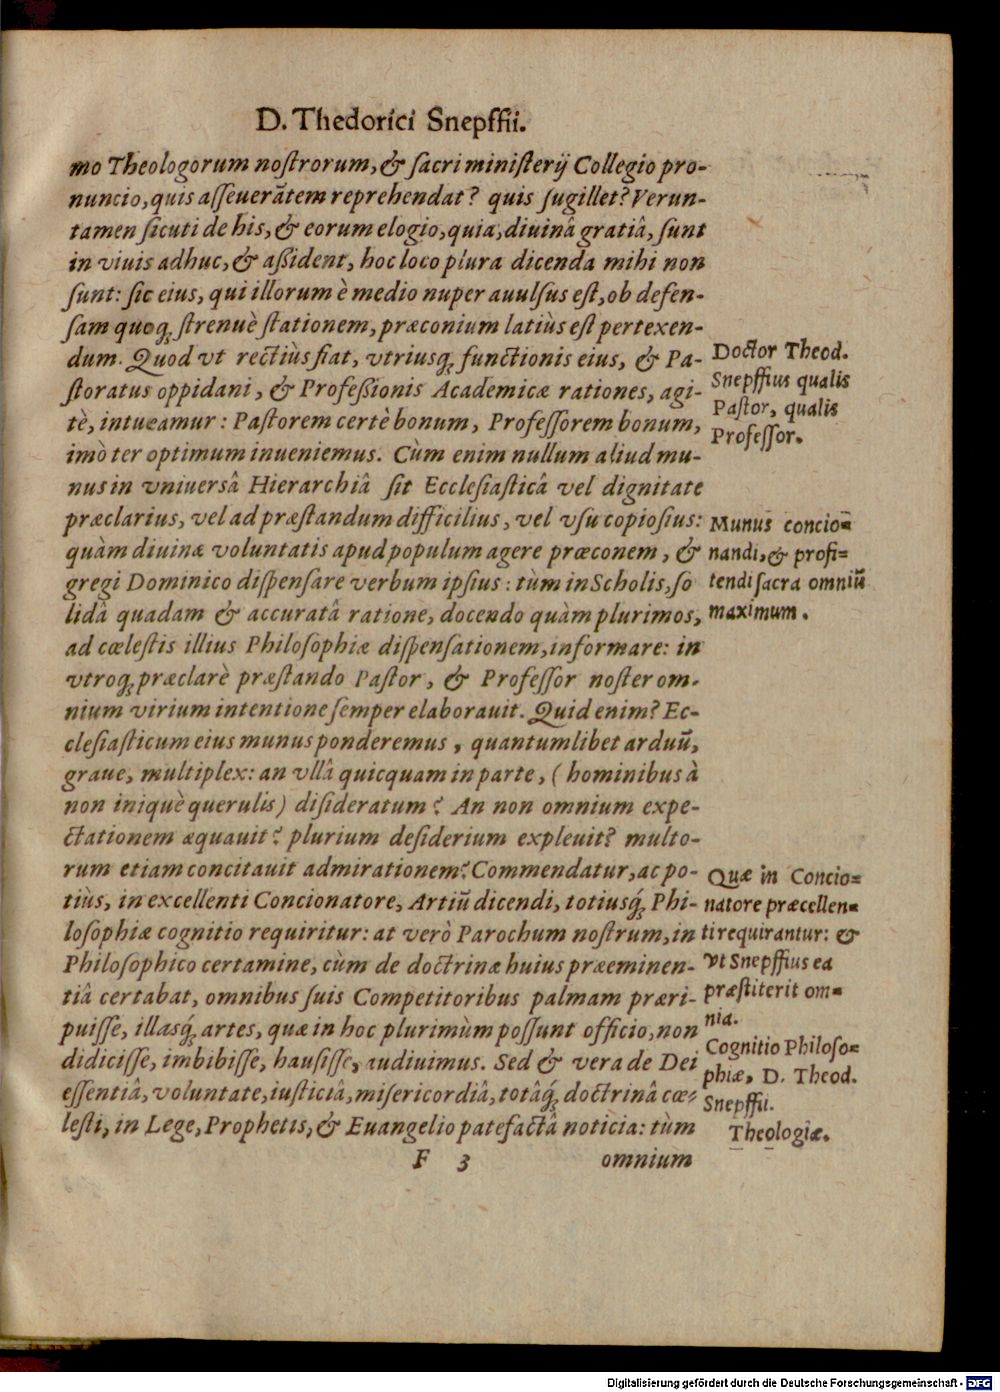 D. Thedorici Snepffii.
mo Theologorum noſtrorum, & ſacri miniſterij Collegio pro-
nuncio, quis aſſeuerãtem reprehendat? quis ſugillet? Verun-
tamen ſicuti de his, & eorum elogio, quia, diuinâ gratiâ, ſunt
in viuis adhuc, & aßident, hoc loco plura dicenda mihi non
ſunt: ſic eius, qui illorum è medio nuper auulſus eſt, ob defen-
ſam quoq; ſtrenuè ſtationem, præconium latiùs eſt pertexen-
dum. Quod vt rectiùs fiat, vtriusq; functionis eius, & Pa-
ſtoratus oppidani, & Profeßionis Academicæ rationes, agi-
tè, intueamur: Paſtorem certè bonum, Profeſſorem bonum,
imò ter optimum inueniemus. Cùm enim nullum aliud mu-
nus in vniuersâ Hierarchiâ ſit Eccleſiaſticâ vel dignitate
præclarius, vel ad præſtandum difficilius, vel vſu copioſius:
quàm diuinæ voluntatis apud populum agere præconem, &
gregi Dominico diſpenſare verbum ipſius: tùm in Scholis, ſo
lidâ quadam & accuratâ ratione, docendo quàm plurimos,
ad cœleſtis illius Philoſophiæ diſpenſationem, informare: in
vtroq; præclarè præſtando Paſtor, & Profeſſor noſter om-
nium virium intentione ſemper elaborauit. Quid enim? Ec-
cleſiaſticum eius munus ponderemus, quantumlibet arduũ,
graue, multiplex: an vllâ quicquam in parte, (hominibus à
non iniquè querulis) diſideratum? An non omnium expe-
ctationem æquauit? plurium deſiderium expleuit? multo-
rum etiam concitauit admirationem? Commendatur, ac po-
tiùs, in excellenti Concionatore, Artiũ dicendi, totiusq́; Phi-
loſophiæ cognitio requiritur: at verò Parochum noſtrum, in
Philoſophico certamine, cùm de doctrinæ huius præeminen-
tiâ certabat, omnibus ſuis Competitoribus palmam præri-
puiſſe, illasq́; artes, quæ in hoc plurimùm poſſunt officio, non
didiciſſe, imbibiſſe, hauſiſſe, audiuimus. Sed & vera de Dei
eſſentiâ, voluntate, iusticiâ, miſericordiâ, totâq́; doctrinâ cœ-
leſti, in Lege, Prophetis, & Euangelio patefactâ noticia: tùm
F 3 omnium
Doctor Theod.
Snepffius qualis
Paſtor, qualis
Profeſſor.
Munus concio-
nandi, & profi-
tendi ſacra omniũ
maximum.
Quæ in Concio-
natore præcellen-
ti requirantur: &
vt Snepffius ea
præſtiterit om-
nia.
Cognitio Philoſo-
phiæ, D. Theod.
Snepffii.
Theologiæ.
Digitalisierung gefördert durch die Deutsche Forschungsgemeinschaft - DFG